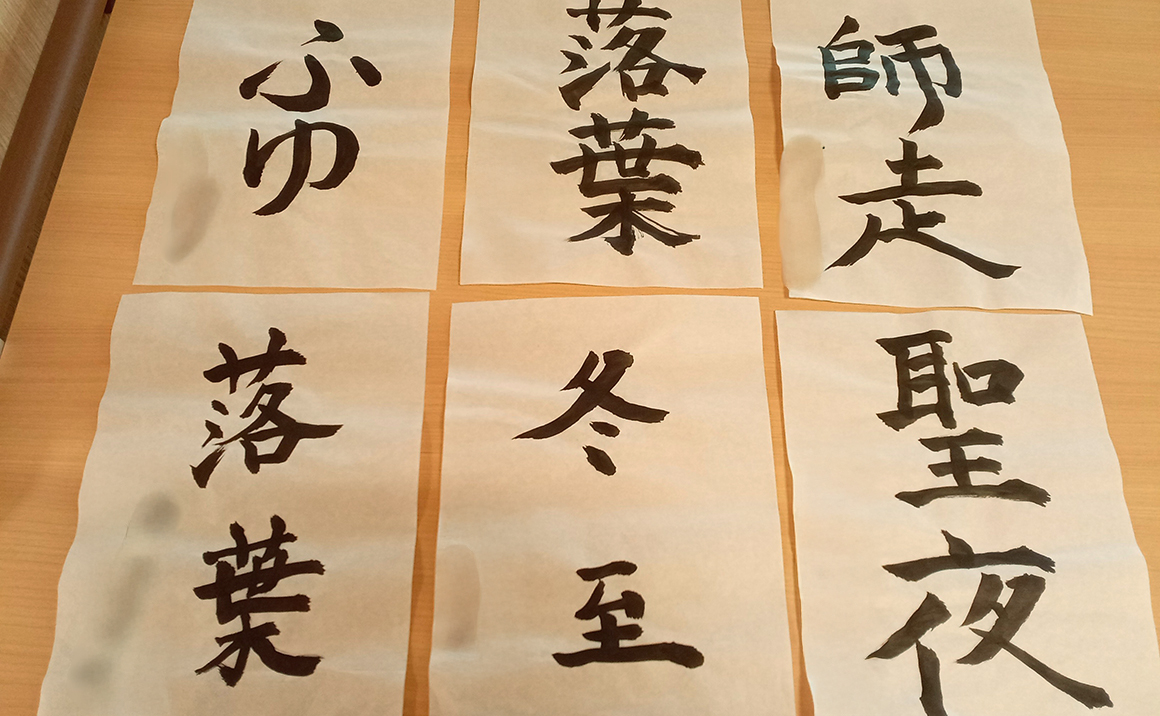 ふゆ
落葉
師走
落葉
冬至
聖夜